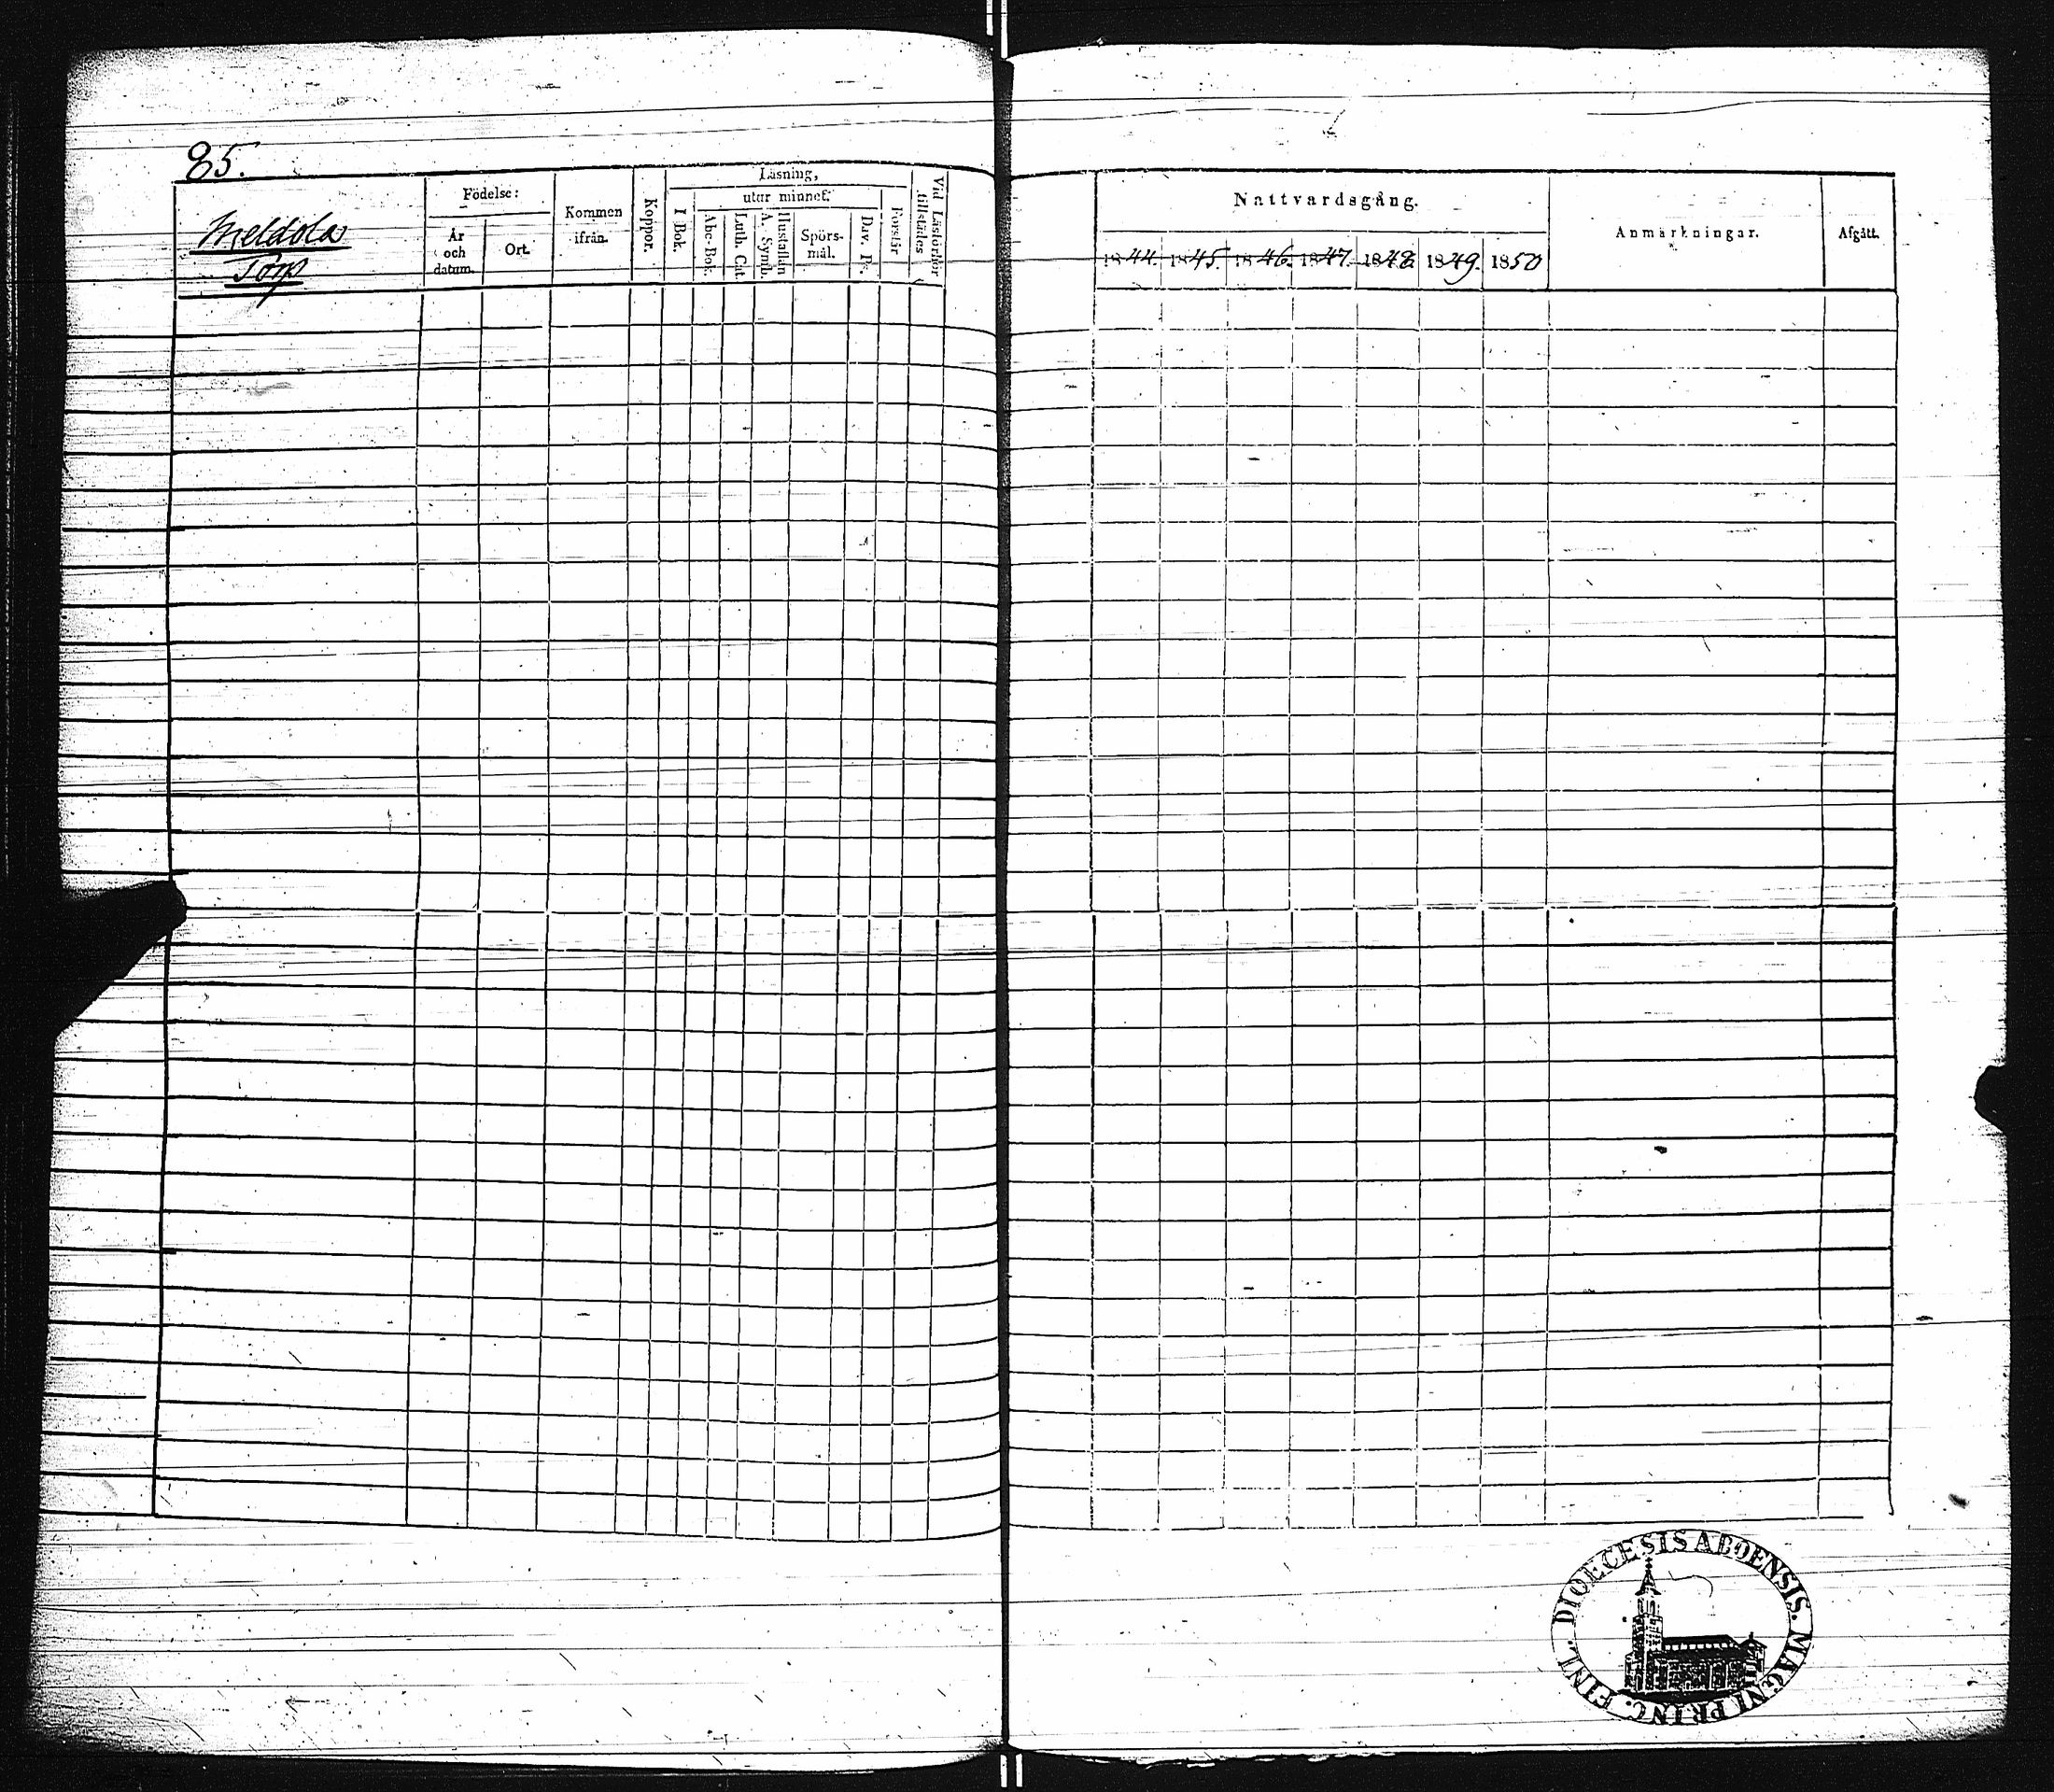 85.
Meldola
Torp
Födelse:
År
och
datum.
Ort.
Kommen
ifrån.
Koppor.
Läsning,
I Bok.
utur minnet.
Abc-Bok.
Luth. Cat.
A. Symb.
Hustaflan
Spörs-
mål.
Dav. Ps.
Förstår
Vid Läsförhör
tillstädes
Nattvardsgång.
1844. 1845. 1846. 1847. 1848. 1849. 1850
Anmärkningar.
Afgått.
DIOECESIS ABOENSIS. MAGNI PRINC. FINL.